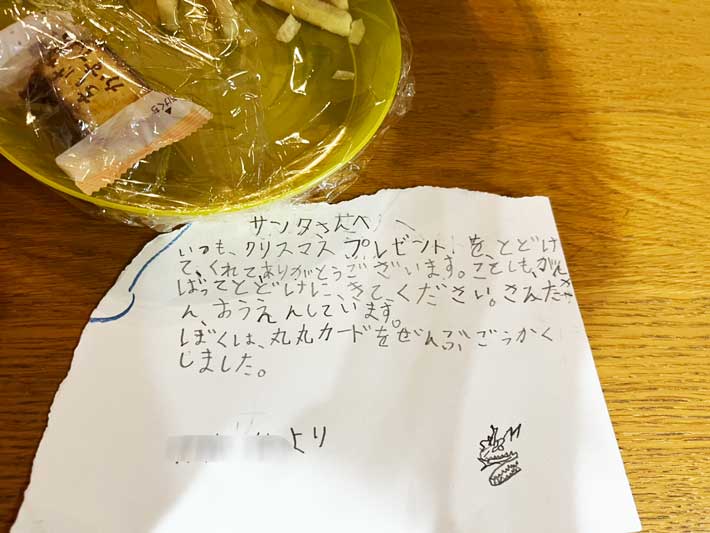 サンタさんへ
いつも、クリスマスプレゼント、を、とどけ
て、くれてありがとうございます。ことしも、がん
ばってとどけに、きて、ください。さんたさ
ん、おうえんしています。
ぼくは、丸丸カードをぜんぶごうかく
しました。
より